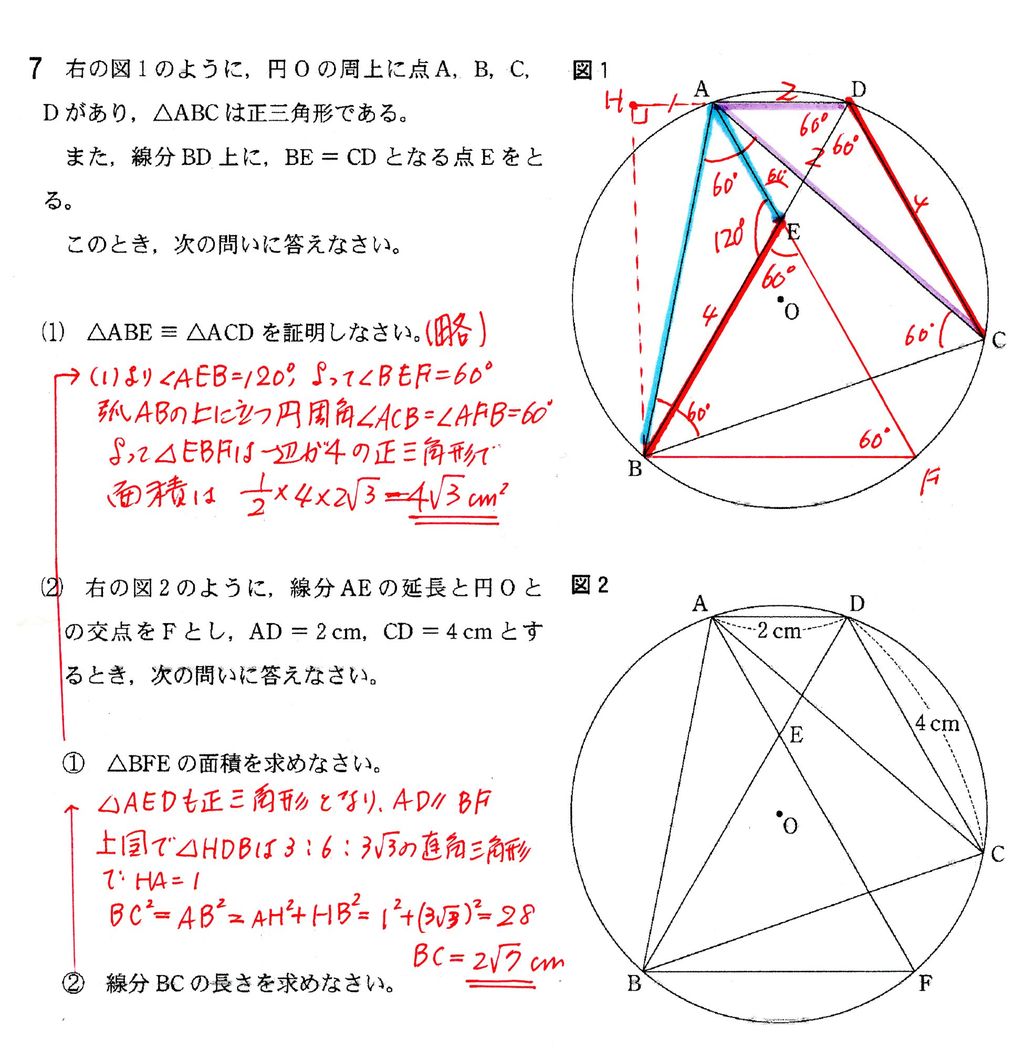 7 右の図1のように，円Oの周上に点A，B，C，
Dがあり，△ABCは正三角形である。
また，線分BD上に，BE＝CDとなる点Eをと
る。
このとき，次の問いに答えなさい。
⑴ △ABE≡△ACDを証明しなさい。(略)
(1)より∠AEB=120°, よって∠BEF=60°
弧ABの上に立つ円周角∠ACB=∠AFB=60°
よって△EBFは一辺が4の正三角形で
面積は 1/2×4×2√3=4√3cm²
⑵ 右の図2のように，線分AEの延長と円Oと
の交点をFとし，AD＝2cm，CD＝4cmとす
るとき，次の問いに答えなさい。
① △BFEの面積を求めなさい。
△AEDも正三角形となり、AD∥BF
上図で△HDBは3:6:3√3の直角三角形
で HA=1
BC²=AB²=AH²+HB²=1²+(3√3)²=28
BC=2√7cm
② 線分BCの長さを求めなさい。
図1
H
1
A
2
D
60°
60°
2
60°
60°
4
120°
E
60°
4
O
60°
C
60°
60°
B
F
図2
A
D
2cm
4cm
E
O
C
B
F